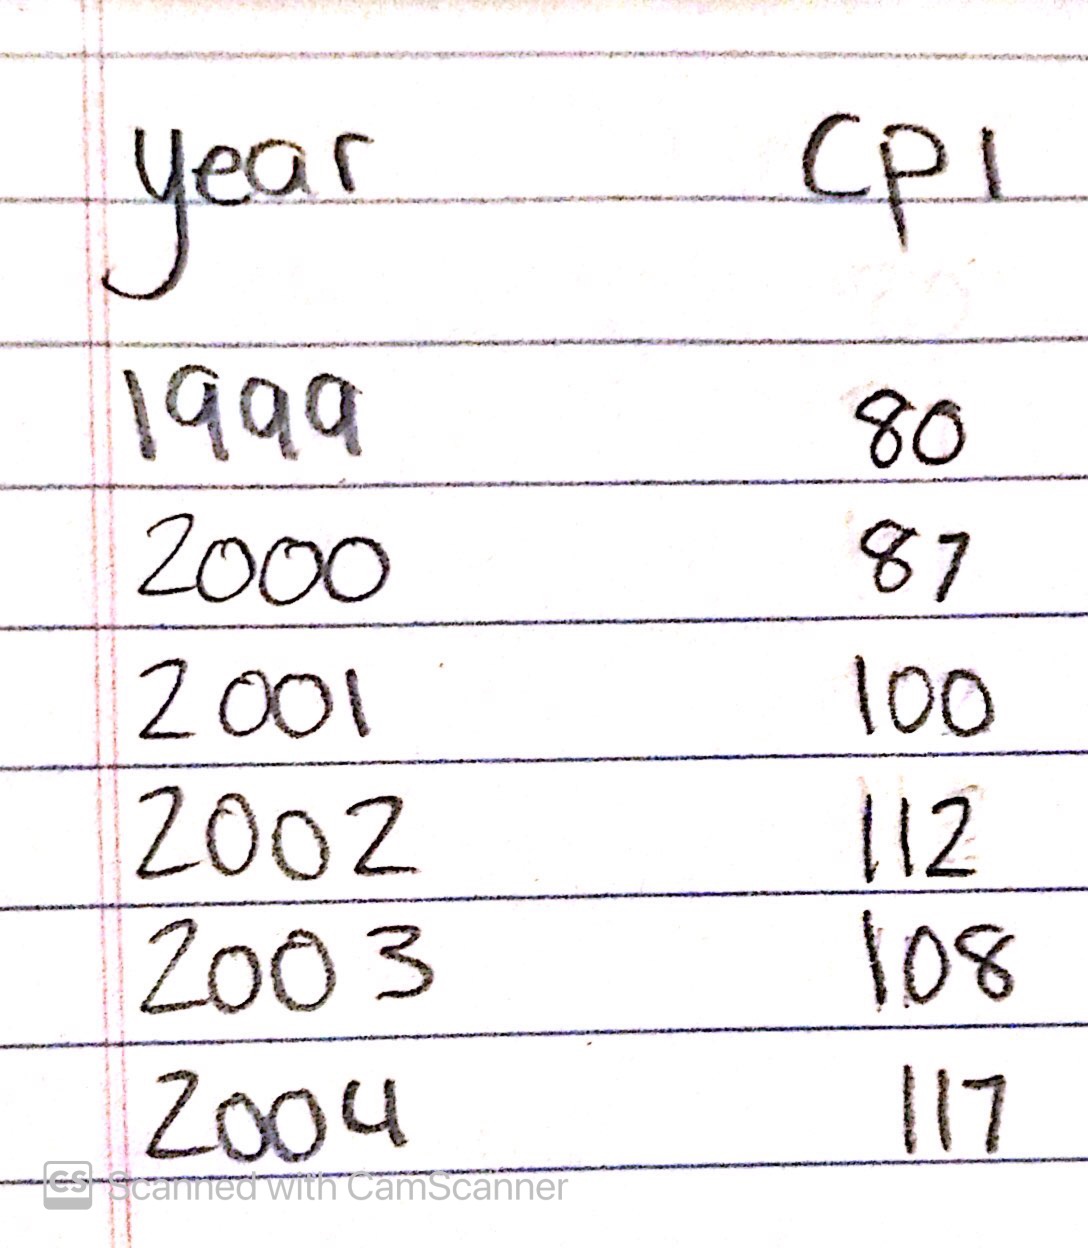 year CPI
1999 80
2000 87
2001 100
2002 112
2003 108
2004 117
CS Scanned with CamScanner